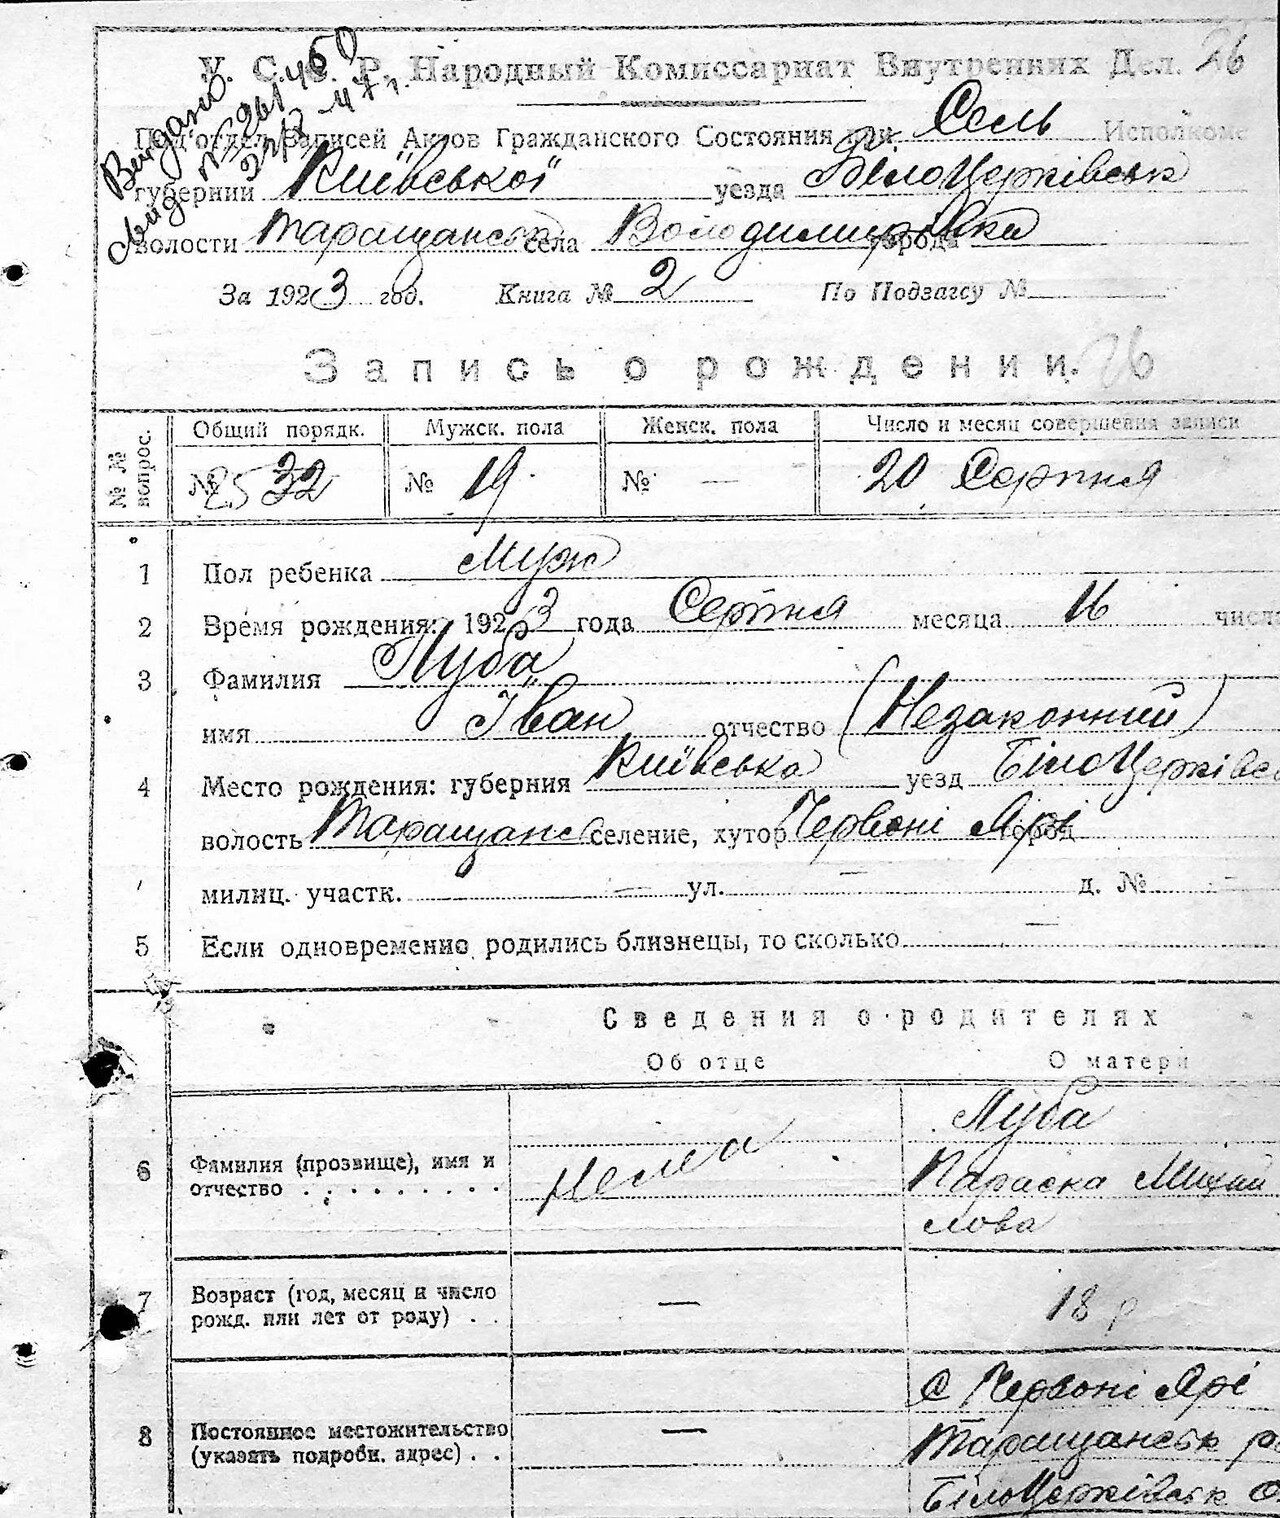 У. С. С. Р. Народный Комиссариат Внутренних Дел. 26
Видано
Под'отдел Записей Актов Гражданского Состояния при Сель Исполкоме
губернии Київської уезда БілоЦерківськ
волости Таращанськ села Володимирівка города
За 1923 год. Книга № 2 По Подзагсу №
Запись о рождении. 26
№ № вопрос. Общий порядк. Мужск. пола Женск. пола Число и месяц совершения записи
№ 32 № 19 № — 20 Серпня
1 Пол ребенка Муж
2 Время рождения: 1923 года Серпня месяца 16 числа
3 Фамилия Луба
имя Іван отчество (Незаконний)
4 Место рождения: губерния Київська уезд БілоЦерківсь
волость Таращанс селение, хутор Червоні Ярі город
милиц. участк. — ул. — д. № —
5 Если одновременно родились близнецы, то сколько —
Сведения о родителях
Об отце О матери
6 Фамилия (прозвище), имя и отчество . . . . . . . . . Нема Луба
Параска Михай
лова
7 Возраст (год, месяц и число рожд. или лет от роду) . . — 18 р
8 Постоянное местожительство (указать подробн. адрес) . . — С Червоні Ярі
Таращанськ р
БілоЦерківськ О